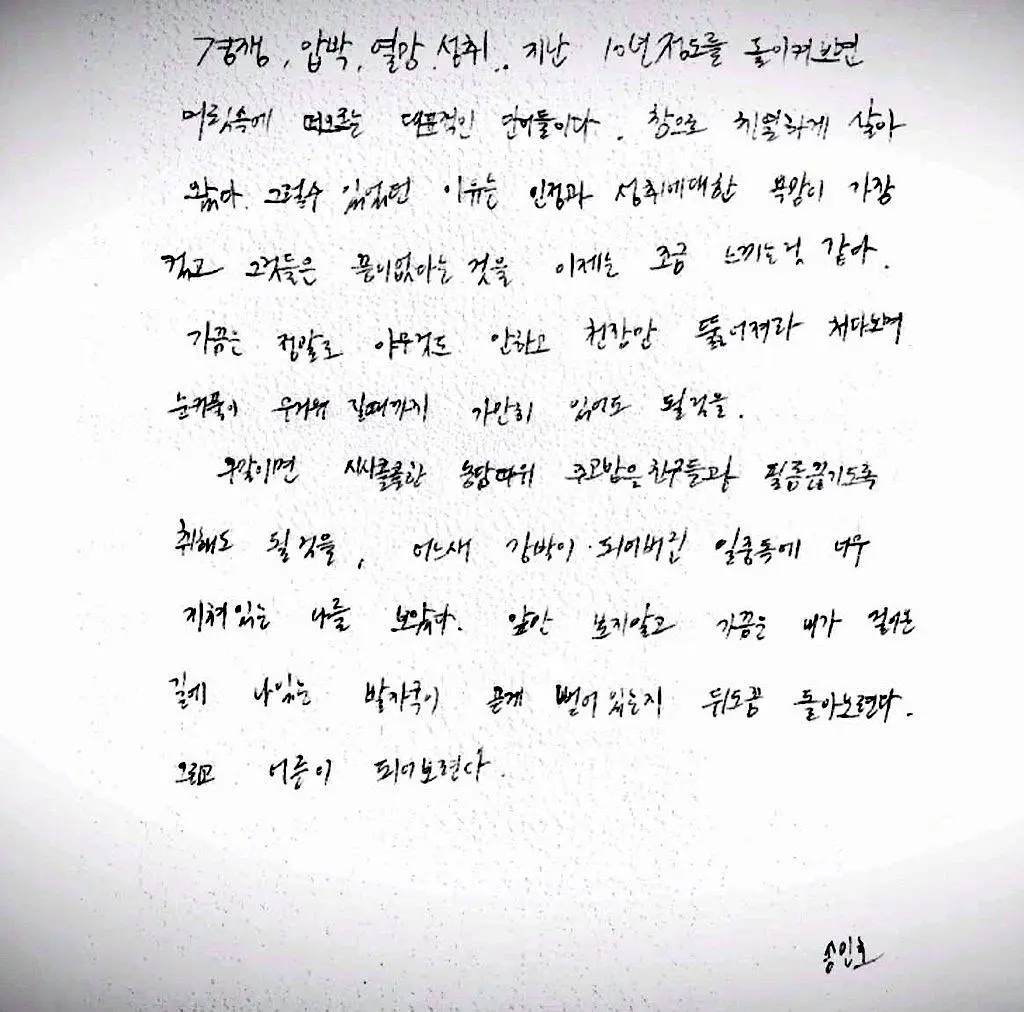 경쟁, 압박, 열망, 성취.. 지난 10년정도를 돌이켜보면
머릿속에 떠오르는 대표적인 단어들이다. 참으로 치열하게 살아
왔다. 그럴수 있었던 이유는 인정과 성취에대한 욕망이 가장
컸고 그것들은 끝이없다는 것을 이제는 조금 느끼는것 같아.
가끔은 정말로 아무것도 안하고 천장만 뚫어져라 쳐다보며
눈꺼풀이 무거워 질때까지 가만히 있어도 될것을.
주말이면 시시콜콜한 농담따위 주고받은 친구들과 필름끊기도록
취해도 될것을, 어느새 강박이 되어버린 일중독에 너무
지쳐있는 나를 보았다. 앞만 보지말고 가끔은 내가 걸어온
길에 나있는 발자국이 곧게 뻗어 있는지 뒤도좀 돌아보련다.
그리고 어른이 되어보련다.
송인호